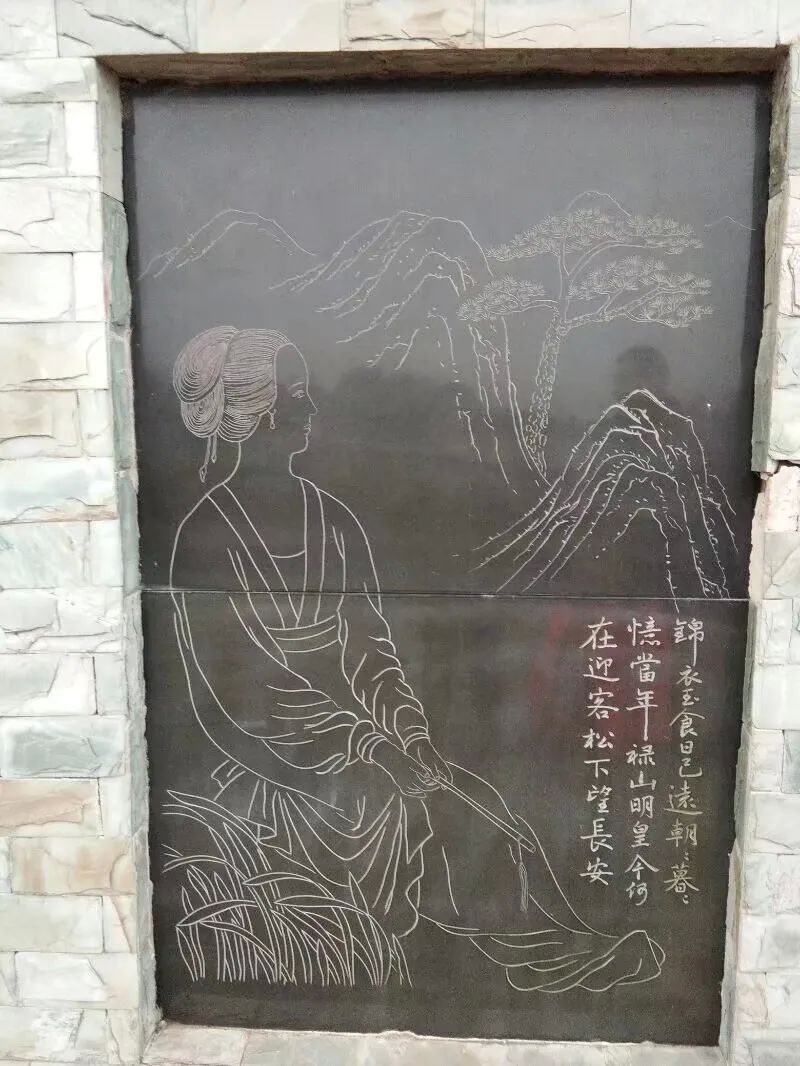 錦衣玉食日已遠朝〻暮〻
憶當年祿山明皇今何
在迎客松下望長安